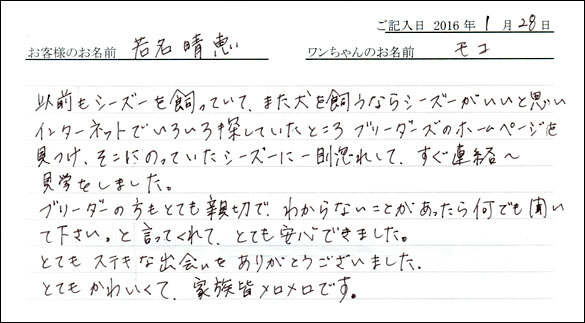 ご記入日 2016年 1月 28日
お客様のお名前 若名晴恵 ワンちゃんのお名前 モコ
以前もシーズーを飼っていて、また犬を飼うならシーズーがいいと思い
インターネットでいろいろ探していたところブリーダーズのホームページを
見つけ、そこにのっていたシーズーに一目惚れして、すぐ連絡〜
見学をしました。
ブリーダーの方もとても親切で、わからないことがあったら何でも聞い
て下さい。と言ってくれて、とても安心できました。
とてもステキな出会いをありがとうございました。
とてもかわいくて、家族皆メロメロです。